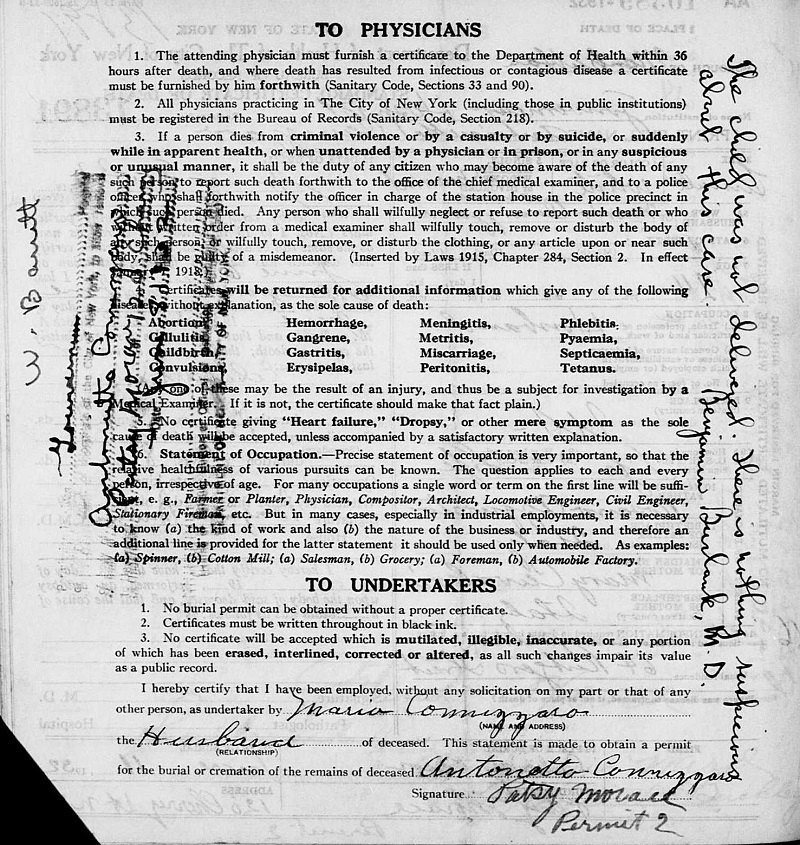 TO PHYSICIANS
1. The attending physician must furnish a certificate to the Department of Health within 36
hours after death, and where death has resulted from infectious or contagious disease a certificate
must be furnished by him forthwith (Sanitary Code, Sections 33 and 90).
2. All physicians practicing in The City of New York (including those in public institutions)
must be registered in the Bureau of Records (Sanitary Code, Section 218).
3. If a person dies from criminal violence or by a casualty or by suicide, or suddenly
while in apparent health, or when unattended by a physician or in prison, or in any suspicious
or unusual manner, it shall be the duty of any citizen who may become aware of the death of any
such person to report such death forthwith to the office of the chief medical examiner, and to a police
officer who shall forthwith notify the officer in charge of the station house in the police precinct in
which such person died. Any person who shall wilfully neglect or refuse to report such death or who
written order from a medical examiner shall wilfully touch, remove or disturb the body of
any such person, or wilfully touch, remove, or disturb the clothing, or any article upon or near such
body, shall be guilty of a misdemeanor. (Inserted by Laws 1915, Chapter 284, Section 2. In effect
1918.)
Certificates will be returned for additional information which give any of the following
diseases, without explanation, as the sole cause of death:
Abortion, Hemorrhage, Meningitis, Phlebitis,
Cellulitis, Gangrene, Metritis, Pyaemia,
Childbirth, Gastritis, Miscarriage, Septicaemia,
Convulsions, Erysipelas, Peritonitis, Tetanus.
(Any one of these may be the result of an injury, and thus be a subject for investigation by a
Medical Examiner. If it is not, the certificate should make that fact plain.)
No certificate giving "Heart failure," "Dropsy," or other mere symptom as the sole
cause of death will be accepted, unless accompanied by a satisfactory written explanation.
6. Statement of Occupation.—Precise statement of occupation is very important, so that the
relative healthfulness of various pursuits can be known. The question applies to each and every
person, irrespective of age. For many occupations a single word or term on the first line will be suffi-
cient, e. g., Farmer or Planter, Physician, Compositor, Architect, Locomotive Engineer, Civil Engineer,
Stationary Fireman, etc. But in many cases, especially in industrial employments, it is necessary
to know (a) the kind of work and also (b) the nature of the business or industry, and therefore an
additional line is provided for the latter statement it should be used only when needed. As examples:
(a) Spinner, (b) Cotton Mill; (a) Salesman, (b) Grocery; (a) Foreman, (b) Automobile Factory.
TO UNDERTAKERS
1. No burial permit can be obtained without a proper certificate.
2. Certificates must be written throughout in black ink.
3. No certificate will be accepted which is mutilated, illegible, inaccurate, or any portion
of which has been erased, interlined, corrected or altered, as all such changes impair its value
as a public record.
I hereby certify that I have been employed, without any solicitation on my part or that of any
other person, as undertaker by Mario Connizzaro
(NAME AND ADDRESS)
the Husband of deceased. This statement is made to obtain a permit
(RELATIONSHIP)
for the burial or cremation of the remains of deceased Antonetta Connizzaro
Signature Patsy
Permit 2
The child was not delivered. There is nothing suspicious
about this case. Benjamin Burbank, M.D.
W. Barrett